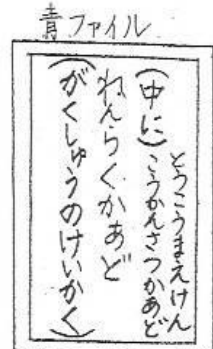 青ファイル
とうこうまえけん
(中に)こうかんさつかあど
れんらくかあど
(がくしゅうのけいかく)